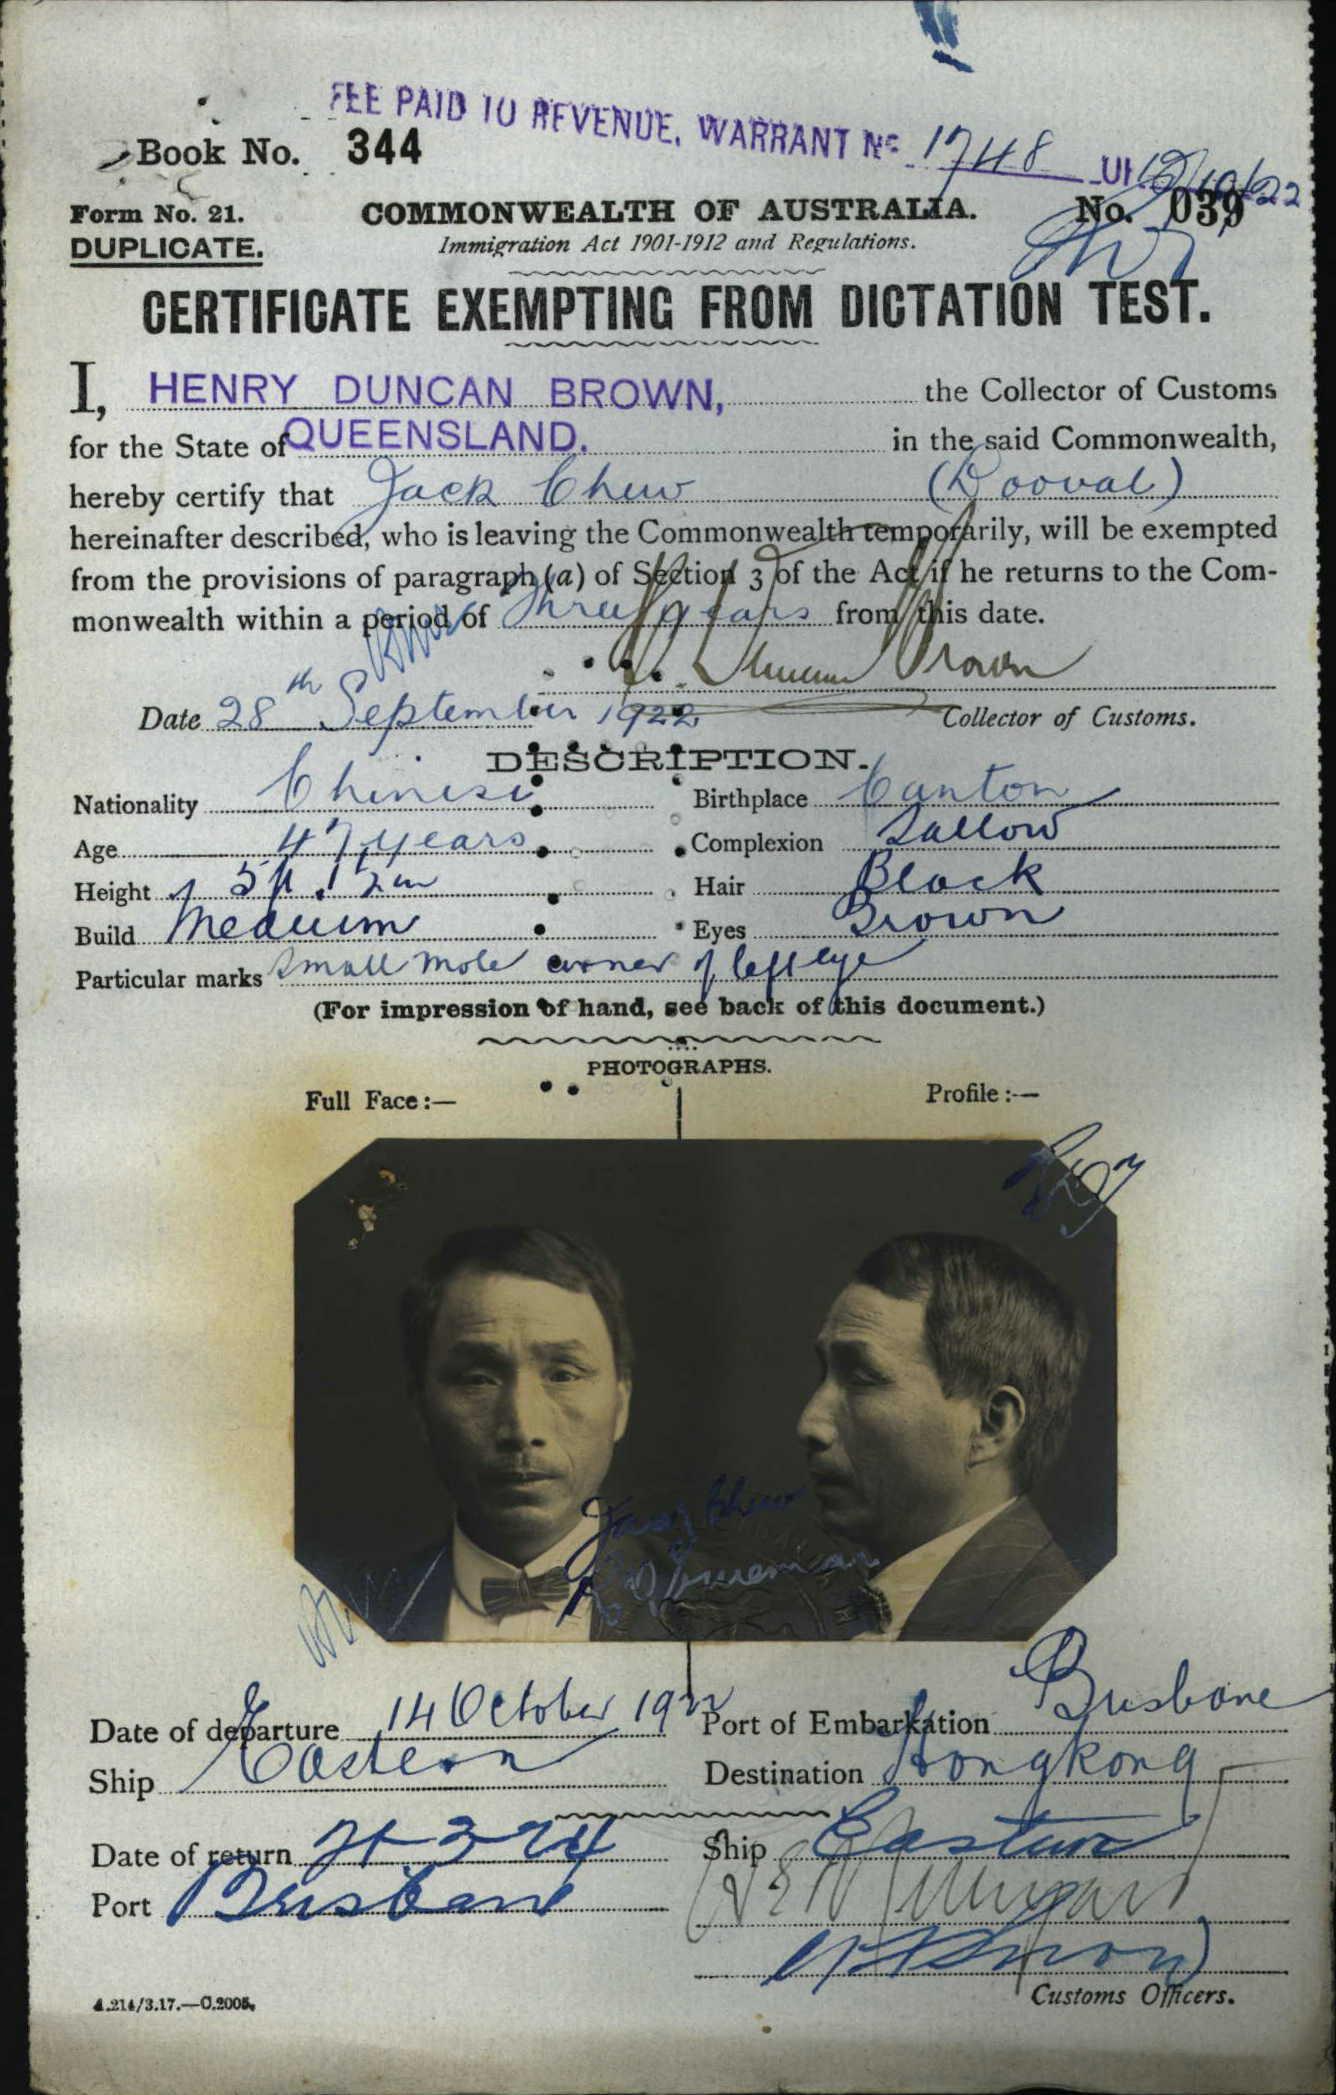 FEE PAID TO REVENUE, WARRANT No 1748
12/10/22
Book No. 344
Form No. 21.
COMMONWEALTH OF AUSTRALIA.
No. 039
DUPLICATE.
Immigration Act 1901-1912 and Regulations.
CERTIFICATE EXEMPTING FROM DICTATION TEST.
I, HENRY DUNCAN BROWN, the Collector of Customs
for the State of QUEENSLAND. in the said Commonwealth,
hereby certify that Jack Chew (Dooval)
hereinafter described, who is leaving the Commonwealth temporarily, will be exempted
from the provisions of paragraph (a) of Section 3 of the Act if he returns to the Com-
monwealth within a period of Three years from this date.
H. Duncan Brown
Date 28th September 1922 Collector of Customs.
DESCRIPTION.
Nationality Chinese Birthplace Canton
Age 47 years Complexion Sallow
Height 5ft. 1½in Hair Black
Build Medium Eyes Brown
Particular marks Small mole corner of left eye
(For impression of hand, see back of this document.)
PHOTOGRAPHS.
Full Face:— Profile:—
Jack Chew
Date of departure 14 October 1922 Port of Embarkation Brisbane
Ship Eastern Destination Hongkong
Date of return 21-3-24 Ship Eastern
Port Brisbane
Customs Officers.
A.214/3.17.—C.2005.